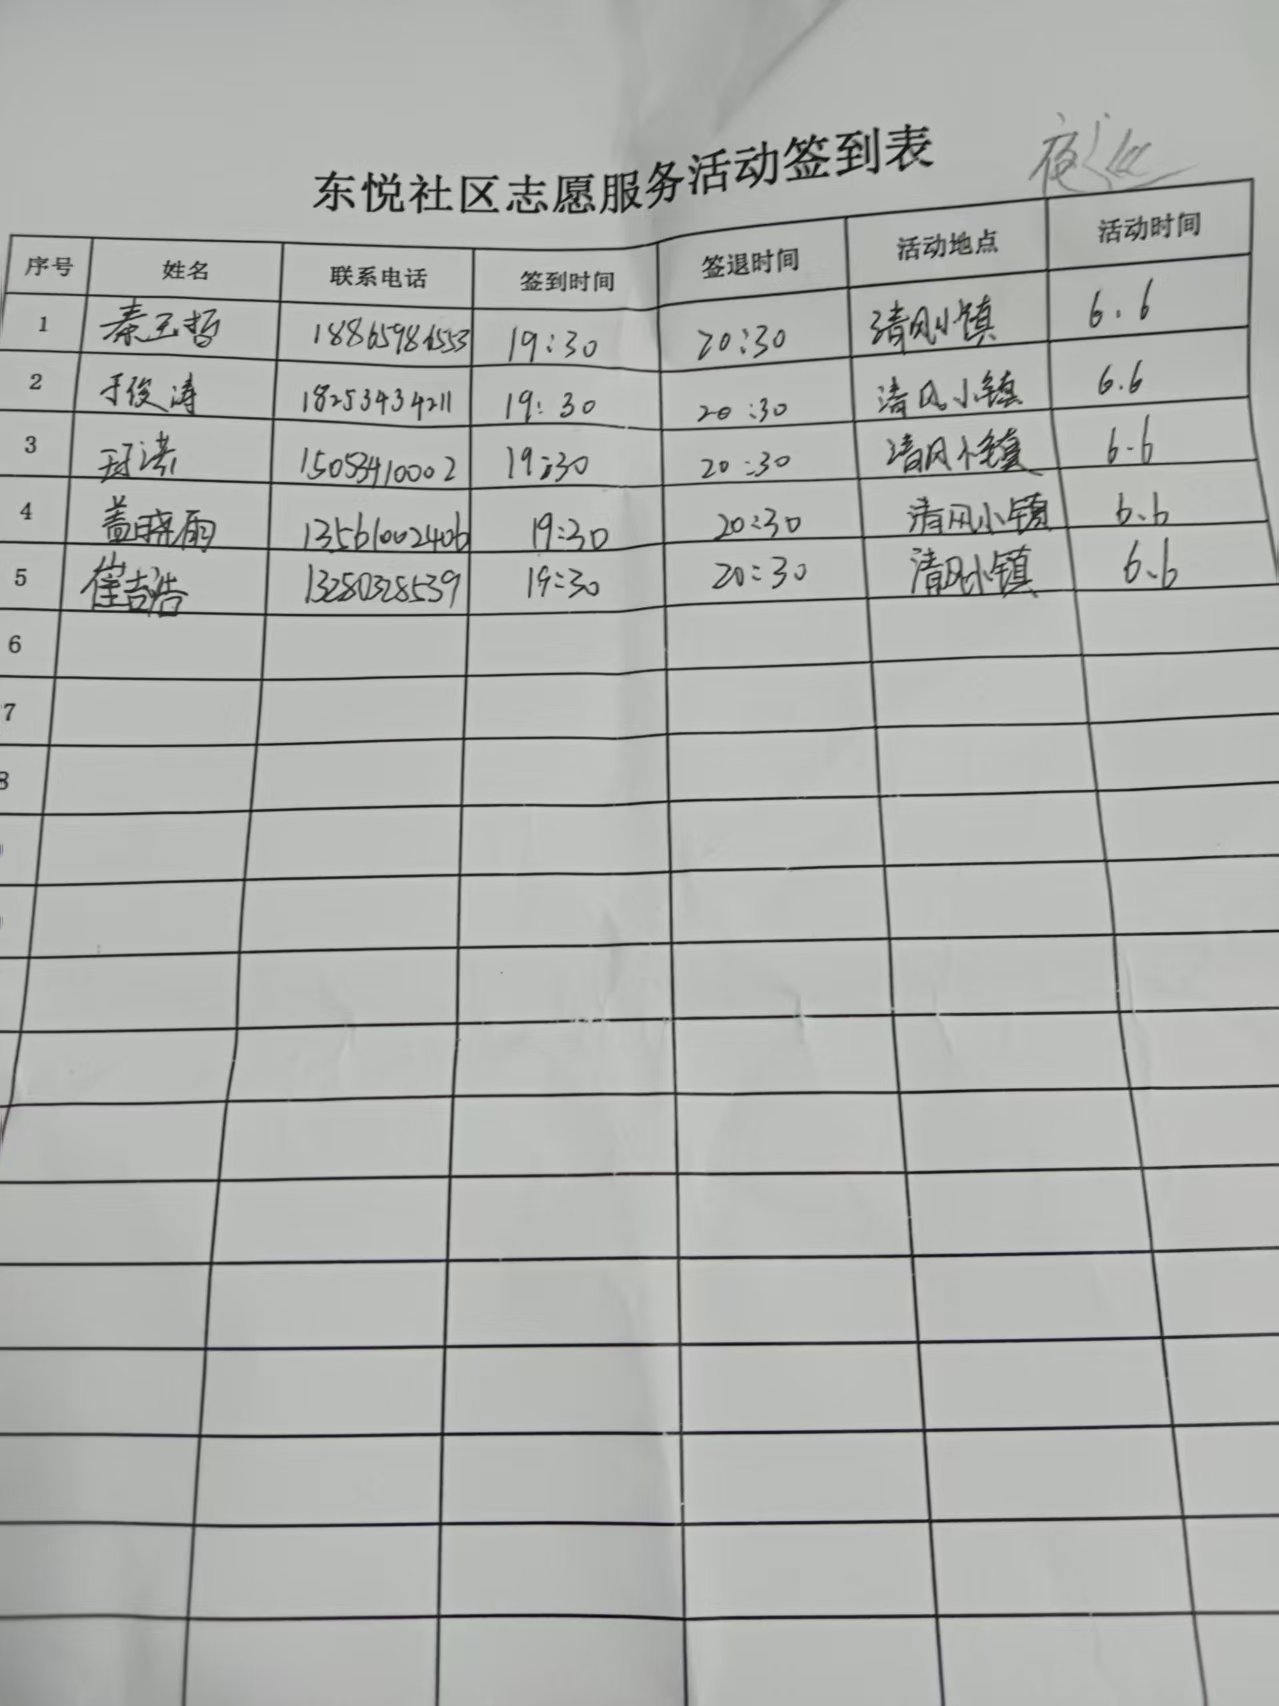 夜巡
东悦社区志愿服务活动签到表
序号 姓名 联系电话 签到时间 签退时间 活动地点 活动时间
1 秦玉哲 18865986553 19:30 20:30 清风小镇 6.6
2 于俊涛 18253434211 19:30 20:30 清风小镇 6.6
3 15053410002 19:30 20:30 清风小镇 6.6
4 盖晓雨 13561002406 19:30 20:30 清风小镇 6.6
5 崔吉浩 13280328539 19:30 20:30 清风小镇 6.6
6
7
8